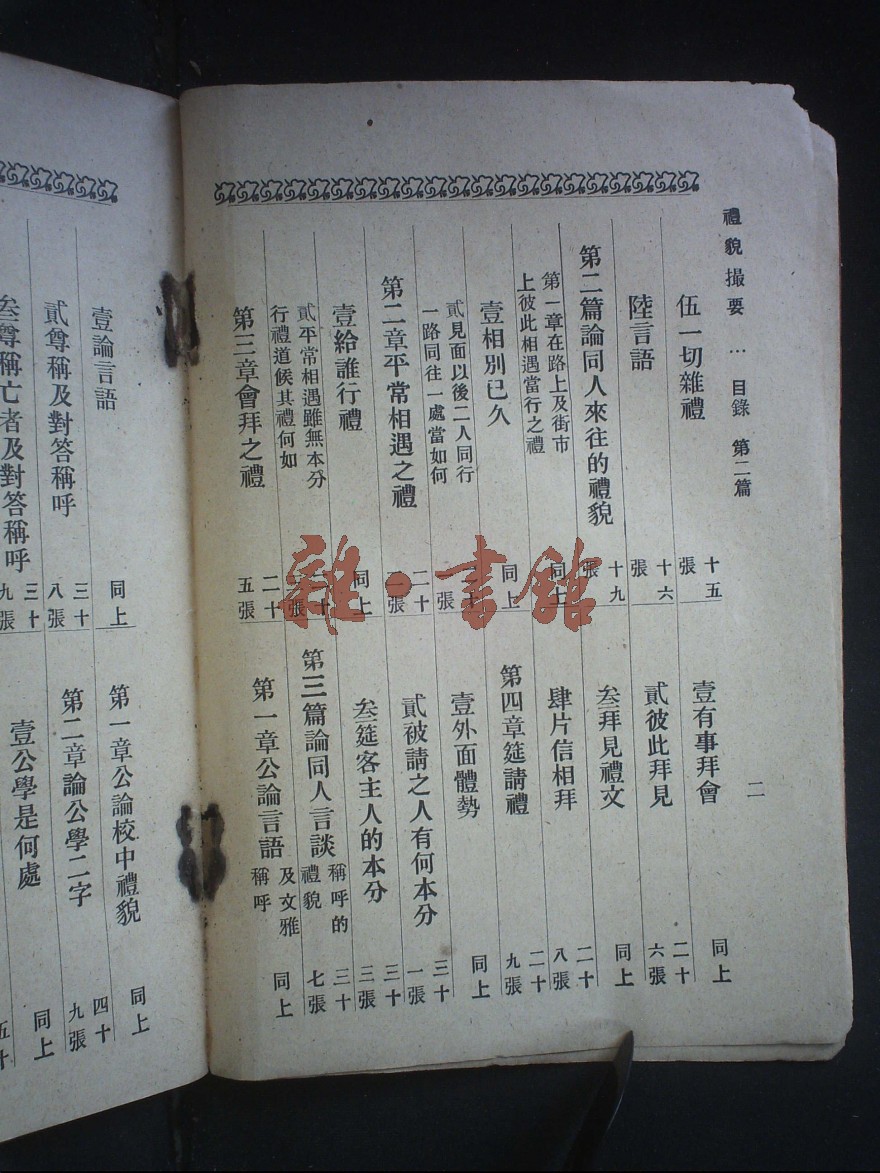 禮貌撮要 … 目錄 第二篇
二
伍一切雜禮 十五張
陸言語 十六張
第二篇論同人來往的禮貌 十九張
第一章在路上及街市上彼此相遇當行之禮 同上
壹相別已久 同上
貳見面以後二人同行一路同往一處當如何
第二章平常相遇之禮 二十一張
壹給誰行禮 同上
貳平常相遇雖無本分行禮道候其禮何如
第三章會拜之禮 二十五張
壹有事拜會 同上
貳彼此拜見 二十六張
叁拜見禮文 同上
肆片信相拜 二十八張
第四章筵請禮 二十九張
壹外面體勢 同上
貳被請之人有何本分 三十一張
叁筵客主人的本分 三十三張
第三篇論同人言談稱呼的禮貌 三十七張
第一章公論言語及文雅稱呼 同上
壹論言語 同上
貳尊稱及對答稱呼 三十八張
叁尊稱亡者及對答稱呼 三十九張
第一章公論校中禮貌 同上
第二章論公學二字 四十九張
壹公學是何處 同上
五十
雜·書館